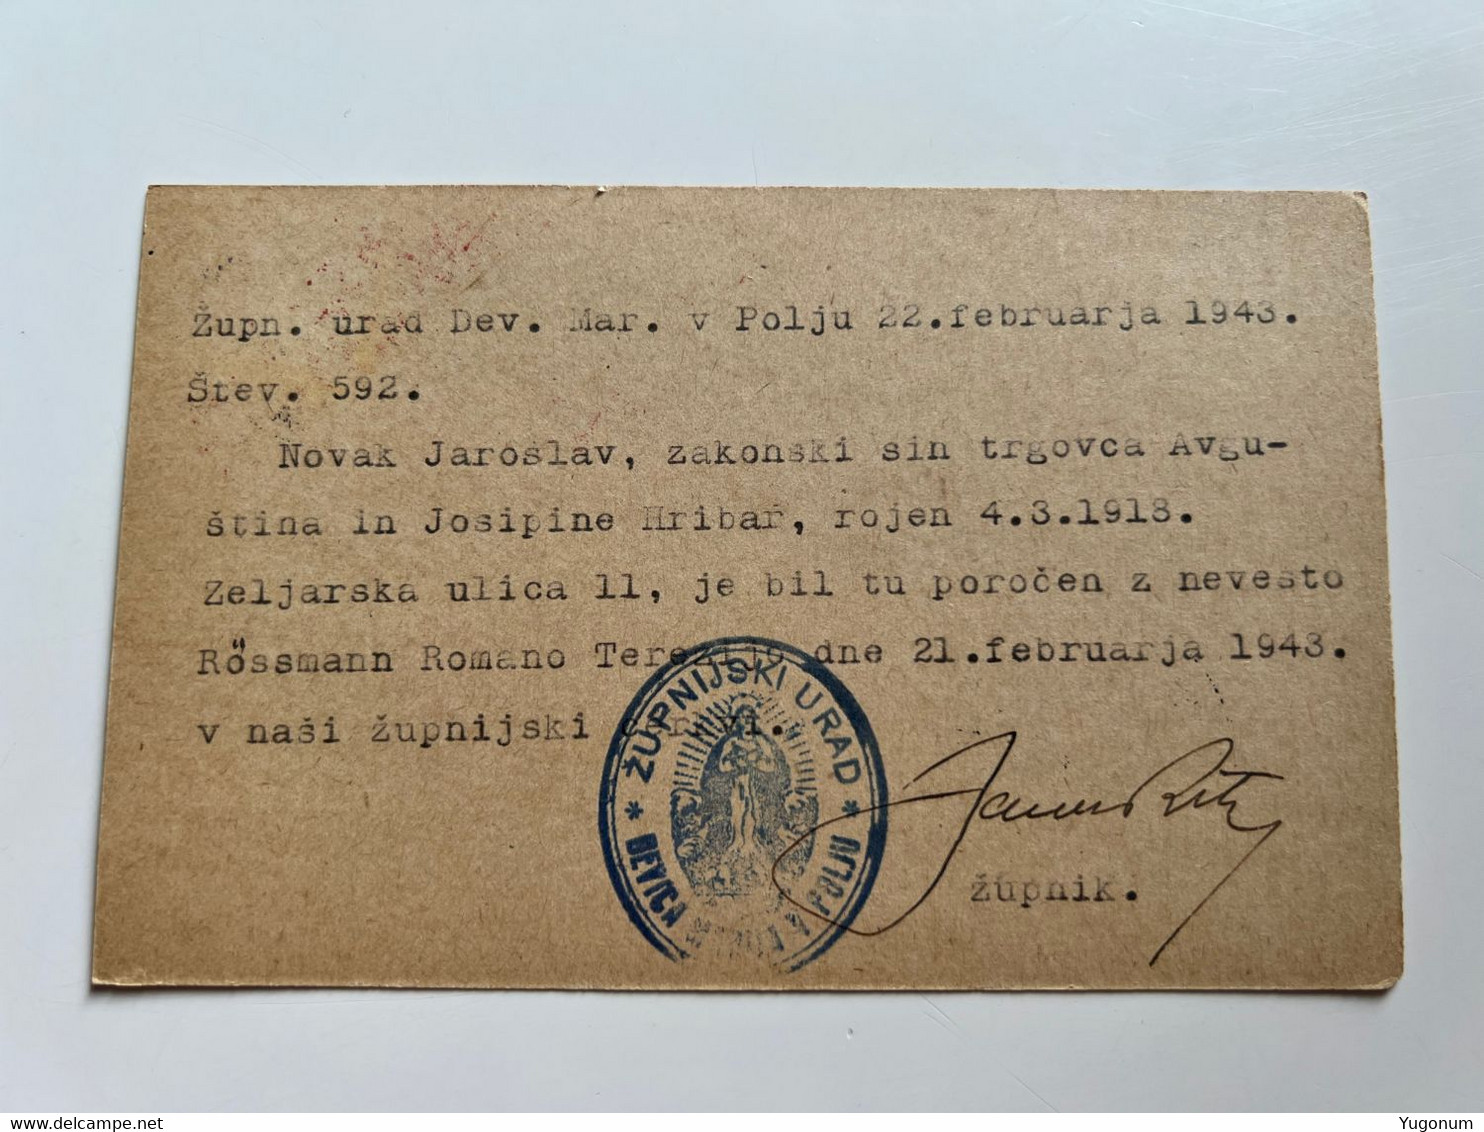 Župn. urad Dev. Mar. v Polju 22.februarja 1943.
Štev. 592.
Novak Jaroslav, zakonski sin trgovca Avgu-
ština in Josipine Hribar, rojen 4.3.1918.
Zeljarska ulica 11, je bil tu poročen z nevesto
Rössmann Romano Terezijo dne 21.februarja 1943.
v naši župnijski cerkvi.
* ŽUPNIJSKI URAD *
DEVICA MARIJA V POLJU
župnik.
Yugonum